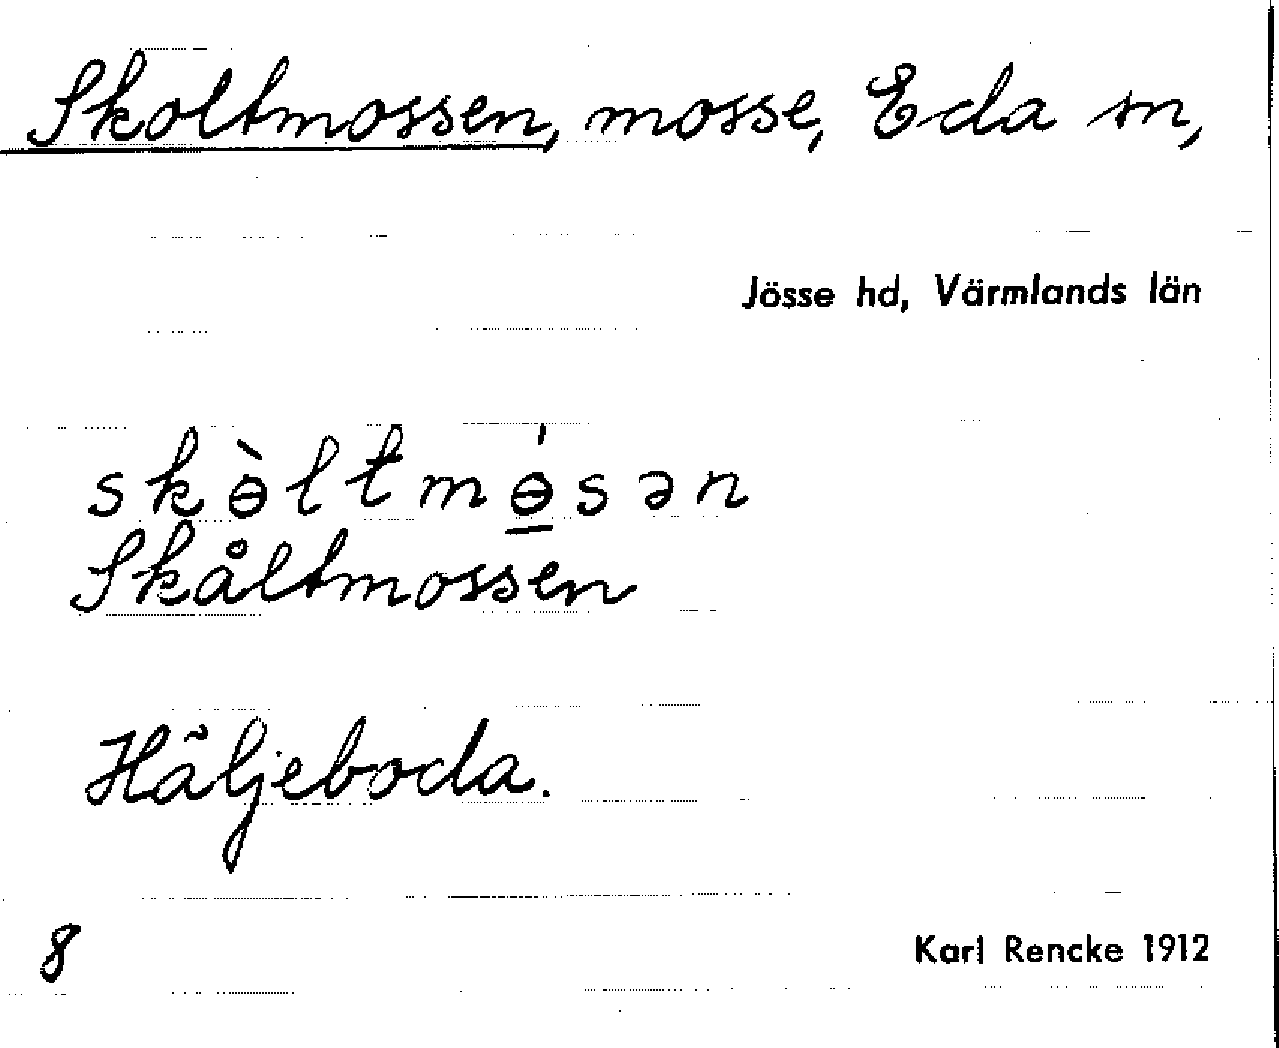 Skoltmossen, mosse, Eda sn,
Jösse hd, Värmlands län
skɵ̀ltmɵ̲́sən
Skåltmossen
Häljeboda.
8
Karl Rencke 1912